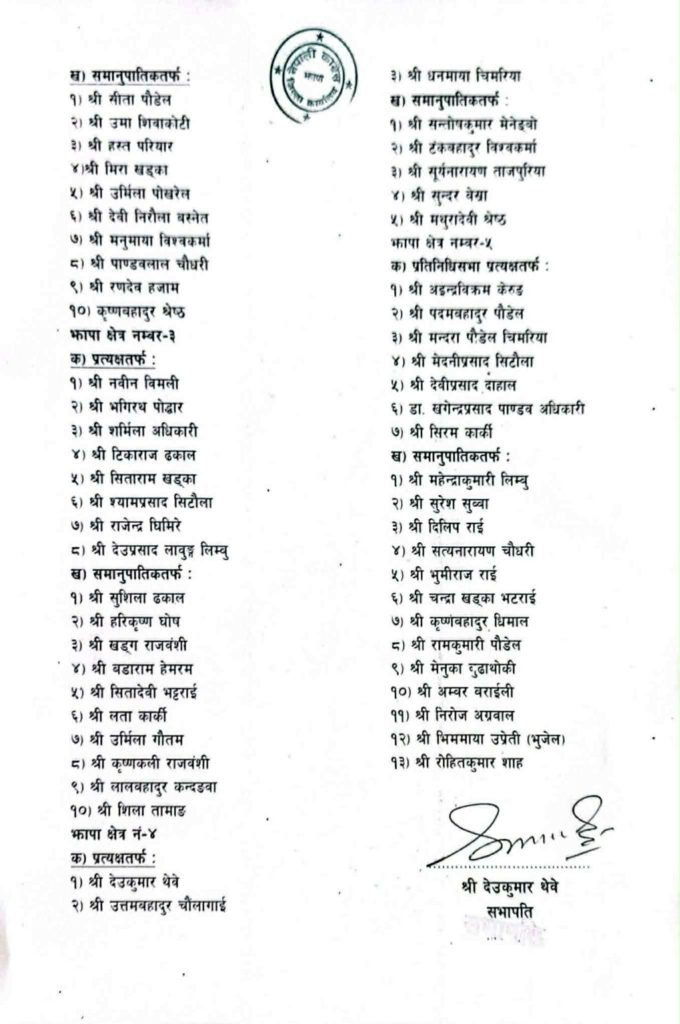 नेपाली कांग्रेस
झापा
जिल्ला कार्यालय
ख) समानुपातिकतर्फ :
१) श्री सीता पौडेल
२) श्री उमा शिवाकोटी
३) श्री हस्त परियार
४)श्री मिरा खड्का
५) श्री उर्मिला पोखरेल
६) श्री देवी निरौला बस्नेत
७) श्री मनुमाया विश्वकर्मा
८) श्री पाण्डवलाल चौधरी
९) श्री रणदेव हजाम
१०) कृष्णबहादुर श्रेष्ठ
झापा क्षेत्र नम्बर-३
क) प्रत्यक्षतर्फ :
१) श्री नवीन विमली
२) श्री भगिरथ पोद्दार
३) श्री शर्मिला अधिकारी
४) श्री टिकाराज ढकाल
५) श्री सिताराम खड्का
६) श्री श्यामप्रसाद सिटौला
७) श्री राजेन्द्र घिमिरे
८) श्री देउप्रसाद लावुङ्ग लिम्बु
ख) समानुपातिकतर्फ :
१) श्री सुशिला ढकाल
२) श्री हरिकृष्ण घोष
३) श्री खड्ग राजवंशी
४) श्री बडाराम हेमरम
५) श्री सितादेवी भट्टराई
६) श्री लता कार्की
७) श्री उर्मिला गौतम
८) श्री कृष्णकली राजवंशी
९) श्री लालबहादुर कन्दङवा
१०) श्री शिला तामाङ
झापा क्षेत्र नं-४
क) प्रत्यक्षतर्फ :
१) श्री देउकुमार थेवे
२) श्री उत्तमबहादुर चौंलागाई
३) श्री धनमाया चिमरिया
ख) समानुपातिकतर्फ :
१) श्री सन्तोषकुमार मेनेङबो
२) श्री टंकबहादुर विश्वकर्मा
३) श्री सूर्यनारायण ताजपुरिया
४) श्री सुन्दर वेग्रा
५) श्री मथुरादेवी श्रेष्ठ
झापा क्षेत्र नम्बर-५
क) प्रतिनिधिसभा प्रत्यक्षतर्फ :
१) श्री अइन्द्रविक्रम केरुङ
२) श्री पदमबहादुर पौडेल
३) श्री मन्दरा पौडेल चिमरिया
४) श्री मेदनीप्रसाद सिटौला
५) श्री देवीप्रसाद दाहाल
६) डा. खगेन्द्रप्रसाद पाण्डव अधिकारी
७) श्री सिरम कार्की
ख) समानुपातिकतर्फ :
१) श्री महेन्द्राकुमारी लिम्बु
२) श्री सुरेश सुब्बा
३) श्री दिलिप राई
४) श्री सत्यनारायण चौधरी
५) श्री भुमीराज राई
६) श्री चन्द्रा खड्का भटराई
७) श्री कृष्णबहादुर धिमाल
८) श्री रामकुमारी पौडेल
९) श्री मेनुका बुढाथोकी
१०) श्री अम्बर वराईली
११) श्री निरोज अग्रवाल
१२) श्री भिममाया उप्रेती (भुजेल)
१३) श्री रोहितकुमार शाह
श्री देउकुमार थेवे
सभापति